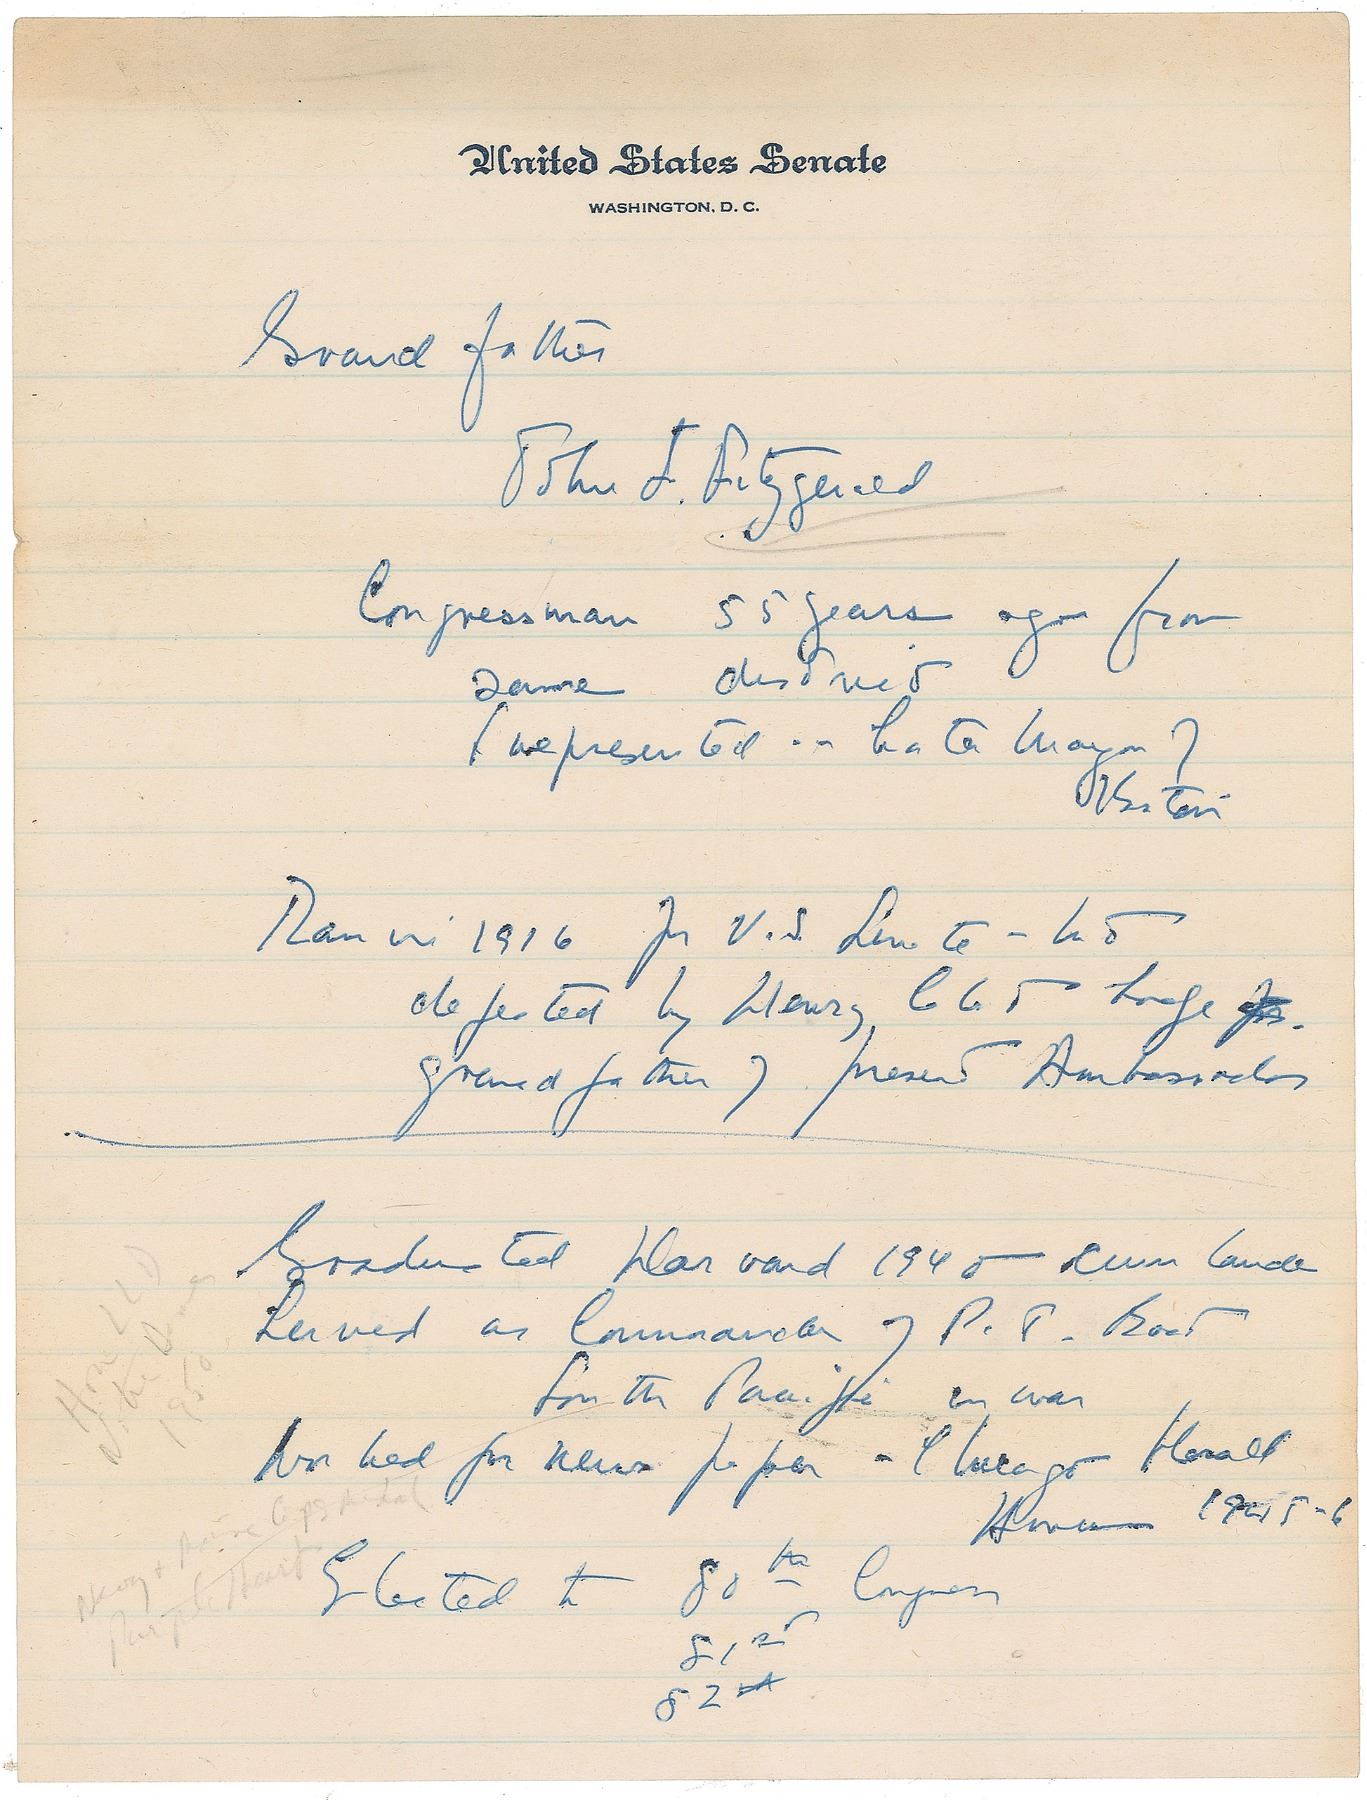 United States Senate
WASHINGTON, D. C.
Grand father
John F. Fitzgerald
Congressman 55 years ago from
same district
I represented -- Later Mayor of
Boston
Ran in 1916 for U.S. Senate - but
defeated by Henry Cabot Lodge
grandfather of present Ambassador
Graduated Harvard 1940 cum laude
Served as Commander of P.T. Boat
South Pacific in war
Worked for news paper - Chicago Herald
1945-6
Elected to 80th Congress
81st
82nd
Hon LLD
Notre Dame
1950
Navy + Marine Corps Medal
Purple Heart